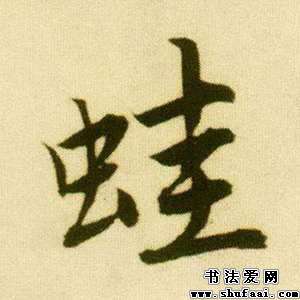 蛙
书法爱网
www.shufaai.com